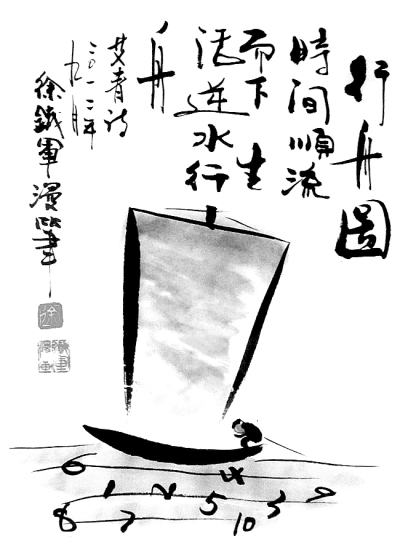 行舟圖
時间順流
而下 生
活逆水行
舟
艾青诗
二〇一二年
九月
徐鐵軍漫筆
6 4
1 2 5 3 9
8 7 10